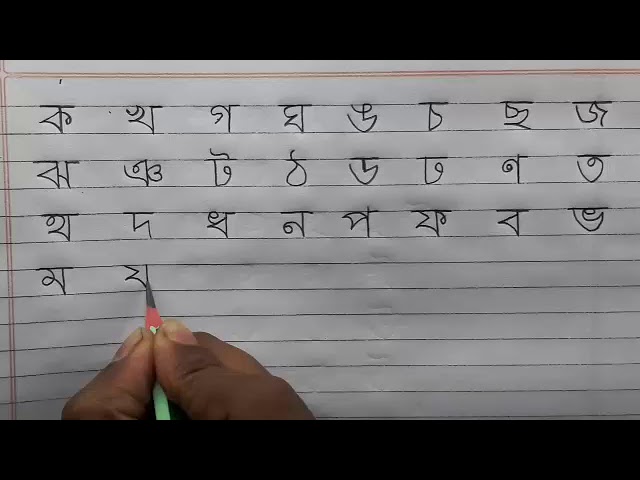 ক খ গ ঘ ঙ চ ছ জ
ঝ ঞ ট ঠ ড ঢ ণ ত
থ দ ধ ন প ফ ব ভ
ম য